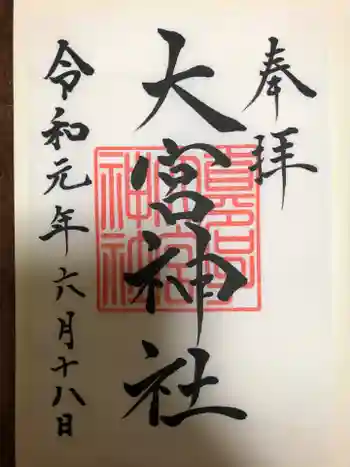 奉拝
大宮神社
令和元年六月十八日